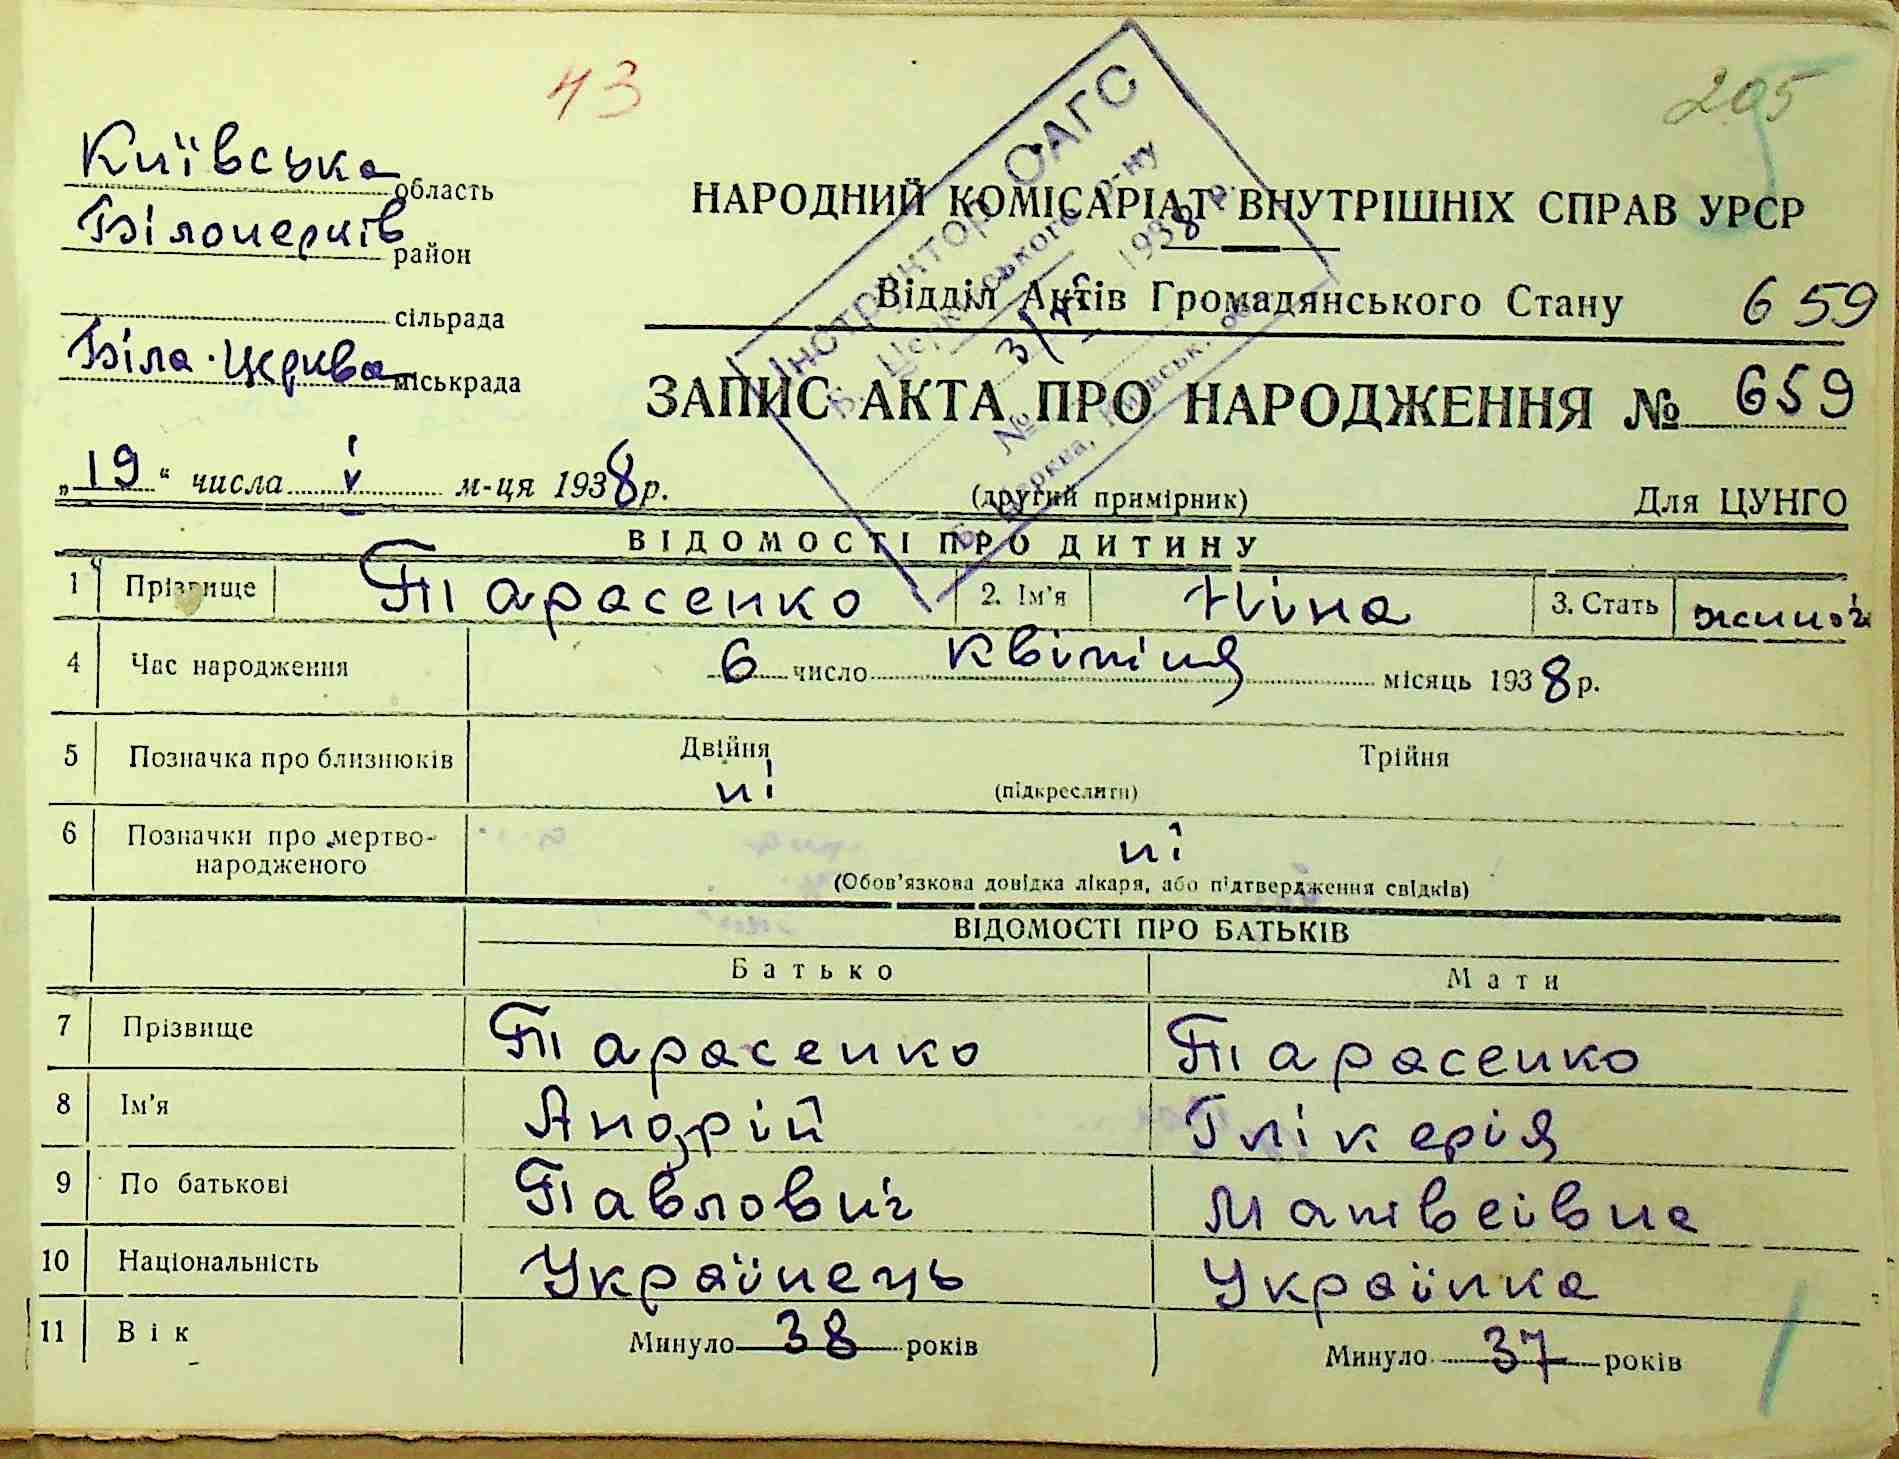 43
205
Київська область
Білоцерків район
сільрада
Біла-Церква міськрада
НАРОДНИЙ КОМІСАРІАТ ВНУТРІШНІХ СПРАВ УРСР
Відділ Актів Громадянського Стану 659
ЗАПИС АКТА ПРО НАРОДЖЕННЯ № 659
„19“ числа V м-ця 1938 р.
(другий примірник) Для ЦУНГО
Інструктор ОАГС
Б. Церківського р-ну
1938 р.
№
Б. Церква, Київськ. об
ВІДОМОСТІ ПРО ДИТИНУ
1 Прізвище Тарасенко 2. Ім'я Ніна 3. Стать
4 Час народження 6 число квітня місяць 1938 р.
5 Позначка про близнюків Двійня Трійня
ні (підкреслити)
6 Позначки про мертво-
народженого ні
(Обов'язкова довідка лікаря, або підтвердження свідків)
ВІДОМОСТІ ПРО БАТЬКІВ
Батько Мати
7 Прізвище Тарасенко Тарасенко
8 Ім'я Андрій Глікерія
9 По батькові Павлович Матвеівна
10 Національність Українець Українка
11 Вік Минуло 38 років Минуло 37 років